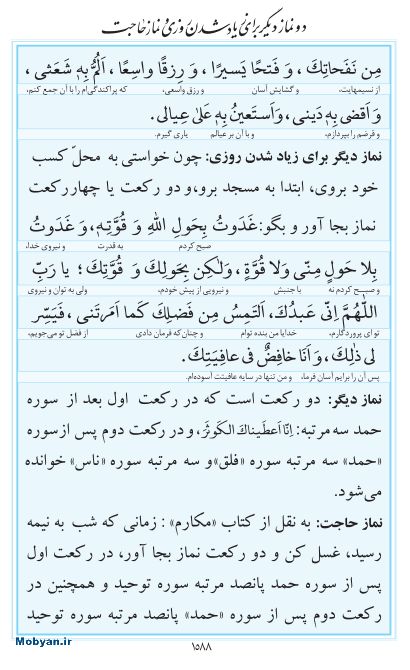 دو نماز دیگر برای زیاد شدن روزی و نماز حاجت
مِن نَفَحاتِكَ، وَ فَتحًا یَسیرًا، وَ رِزقًا واسِعًا، اَلُمُّ بِهِ شَعَثی،
از نسیمهایت، و گشایش آسان و رزق واسعی، که پراکندگی‌ام را با آن جمع کنم،
وَ اَقضی بِهِ دَینی، وَ اَستَعینُ بِهِ عَلی عِیالی.
و قرضم را بپردازم، و با آن بر عیالم یاری گیرم.
نماز دیگر برای زیاد شدن روزی: چون خواستی به محلّ کسب
خود بروی، ابتدا به مسجد برو، و دو رکعت یا چهار رکعت
نماز بجا آور و بگو: غَدَوتُ بِحَولِ اللهِ وَ قُوَّتِهِ، وَ غَدَوتُ
صبح کردم به قدرت و نیروی خدا،
بِلا حَولٍ مِنّی وَلا قُوَّةٍ، وَلٰکِن بِحَولِكَ وَ قُوَّتِكَ؛ یا رَبِّ
و صبح کردم نه با جنبش و نیرویی از پیش خودم، ولی به توان و نیروی
اَللّٰهُمَّ اِنّی عَبدُكَ، اَلتَمِسُ مِن فَضلِكَ کَما اَمَرتَنی، فَیَسِّر
تو ای پروردگارم، خدایا من بنده توام و چنان‌که فرمان دادی از فضل تو می‌جویم،
لی ذٰلِكَ، وَ اَنَا خافِضٌ فی عافِیَتِكَ.
پس آن را برایم آسان فرما، و من تنها در سایه عافیتت آسوده‌ام.
نماز دیگر: دو رکعت است که در رکعت اول بعد از سوره
حمد سه مرتبه: اِنّا اَعطَیناكَ الکَوثَرَ، و در رکعت دوم پس از سوره
«حمد» سه مرتبه سوره «فلق» و سه مرتبه سوره «ناس» خوانده
می‌شود.
نماز حاجت: به نقل از کتاب «مکارم»: زمانی که شب به نیمه
رسید، غسل کن و دو رکعت نماز بجا آور، در رکعت اول
پس از سوره حمد پانصد مرتبه سوره توحید و همچنین در
رکعت دوم پس از سوره «حمد» پانصد مرتبه سوره توحید
Mobyan.ir
۱۵۸۸